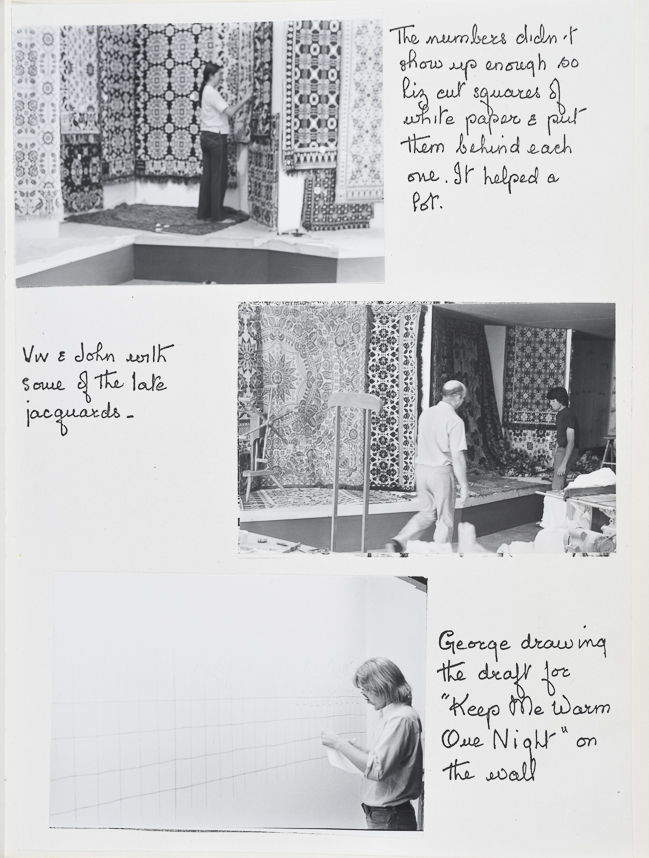 The numbers didn't
show up enough so
Liz cut squares of
white paper & put
them behind each
one. It helped a
lot.
Viv & John with
some of the late
jacquards -
George drawing
the draft for
"Keep Me Warm
One Night" on
the wall